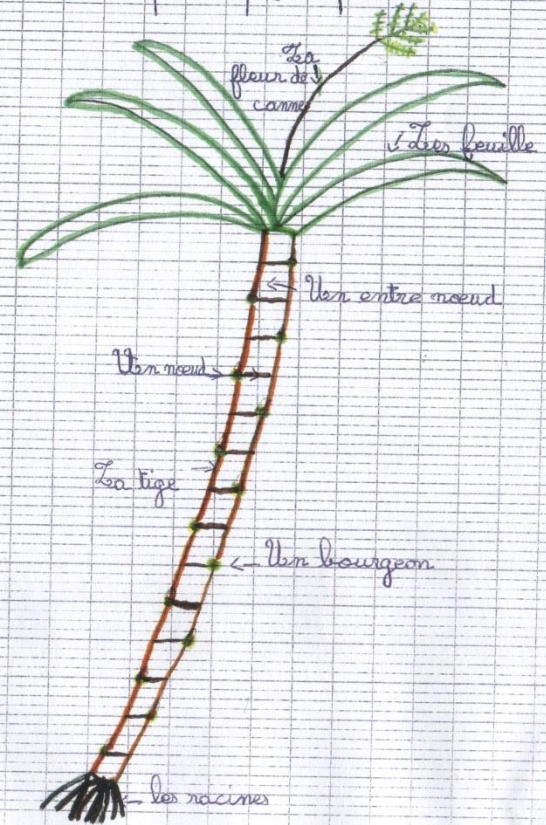 La
fleur de
canne
Les feuille
Un entre nœud
Un nœud
La tige
Un bourgeon
les racines